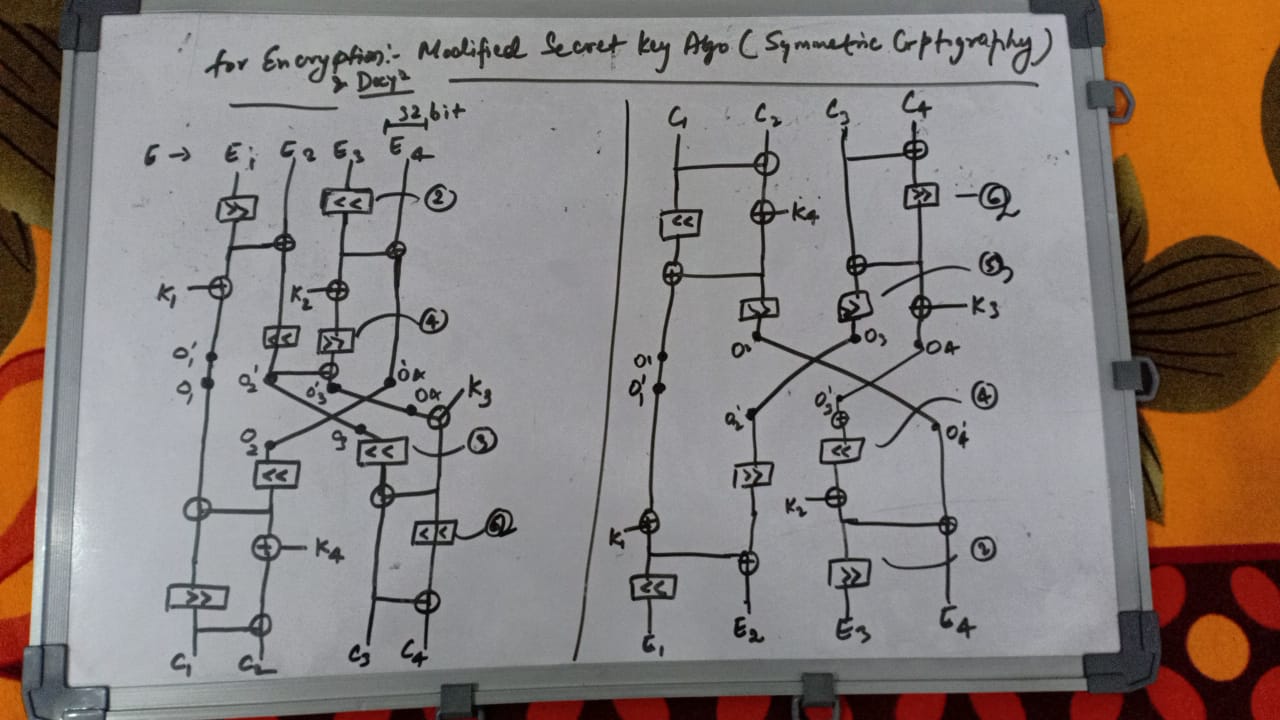 for Encryption:- Modified Secret Key Algo (Symmetric Crptigraphy)
& Decyⁿ
32 bit
E → E1 E2 E3 E4
>> << ②
K1 K2
<< >> ④
O1'
O1 O2' O3' O4' O4 K3
O2 O3
<< << ③
<<
K4
>>
C1 C2 C3 C4
C1 C2 C3 C4
<< >>
K4
>> >> ⑤
K3
O1 O2 O3 O4
O1' O2' O3' O4'
④
>> <<
K2
K1
<< >> ②
E1 E2 E3 E4